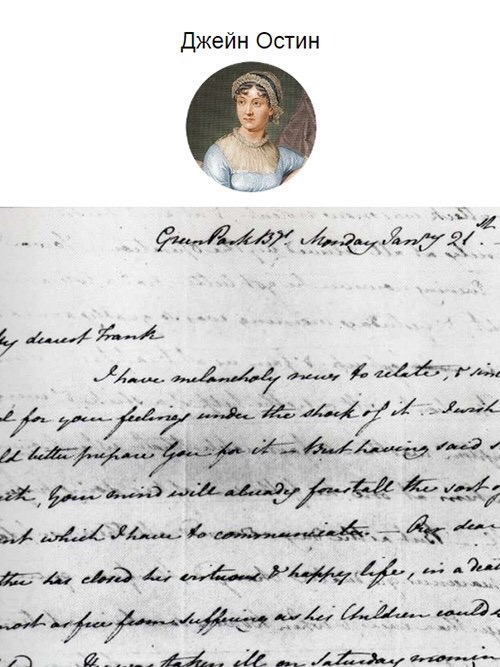 Джейн Остин
Green Park Bgs Monday Janry 21st
My dearest Frank
I have melancholy news to relate, & sin
l for your feelings under the shock of it. I wish
ld better prepare You for it. But having said s
Your mind will already forestall the sort of
nt which I have to communicate. Our dear
ther has closed his virtuous & happy life, in a deat
most as free from suffering as his Children could
He was taken ill on Saturday mornin